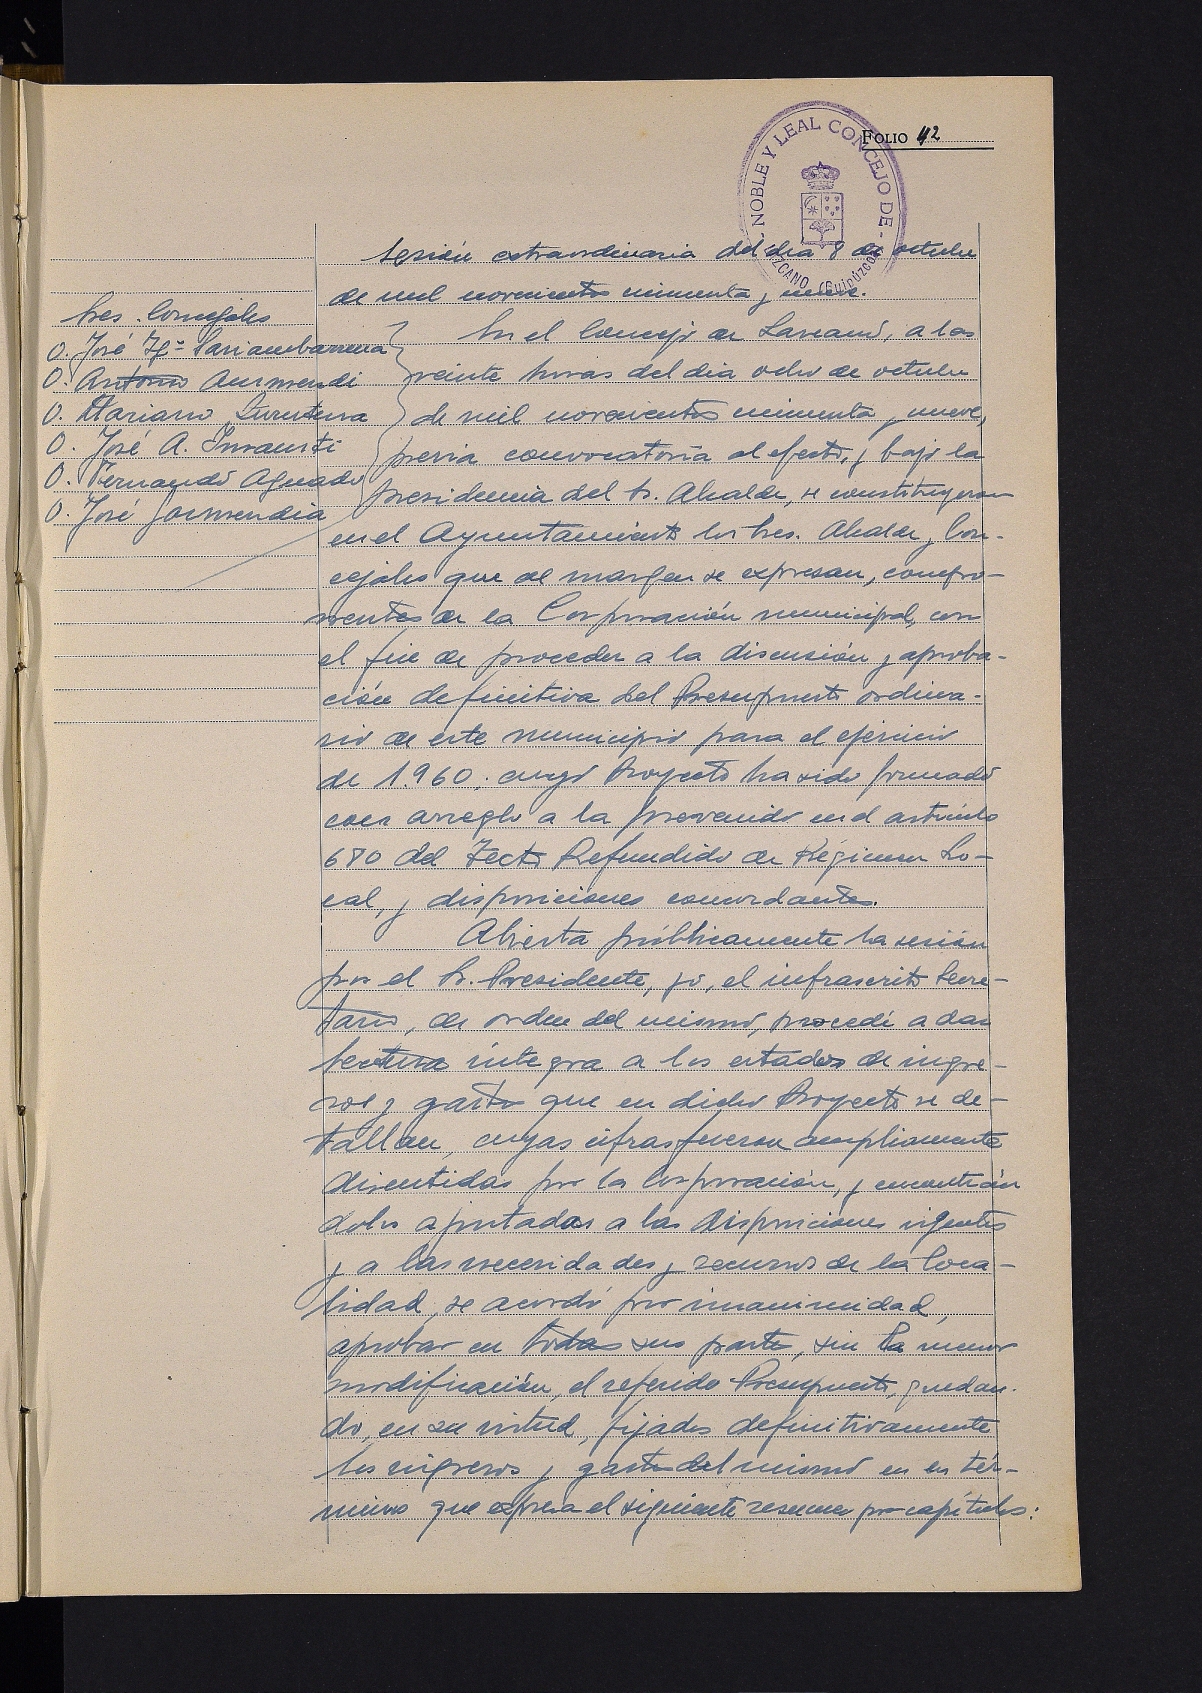 FOLIO 42
NOBLE Y LEAL CONCEJO DE
LAZCANO (Guipúzcoa)
Sesión extraordinaria del día 8 de octubre
de mil novecientos cincuenta y nueve.
Sres. Concejales
D. José Iº
D. Antonio Aurmendi
D. Mariano
D. José A. Insausti
D. Fernando Aguado
D. José Gosmendia
En el Concejo de Lazcano, a las
veinte horas del día ocho de octubre
de mil novecientos cincuenta y nueve,
previa convocatoria al efecto, y bajo la
presidencia del Sr. Alcalde, se constituyeron
en el Ayuntamiento los Sres. Alcalde y Con-
cejales que al margen se expresan, compo-
nentes de la Corporación municipal, con
el fin de proceder a la discusión y aproba-
ción definitiva del Presupuesto ordina-
rio de este municipio para el ejercicio
de 1.960; cuyo Proyecto ha sido formado
con arreglo a la prevenido en el artículo
680 del Texto Refundido de Régimen Lo-
cal, y disposiciones concordantes.
Abierta públicamente la sesión
por el Sr. Presidente, yo, el infrascrito Secre-
tario, de orden del mismo, procedí a dar
lectura íntegra a los estados de ingre-
sos y gastos que en dicho Proyecto se de-
tallan, cuyas cifras fueron ampliamente
discutidas por la Corporación, y encontrán
dolos ajustadas a las disposiciones vigentes
y a las necesidades y recursos de la loca-
lidad, se acordó por unanimidad,
aprobar en todas sus parte, sin la menor
modificación, el referido Presupuesto, quedan-
do, en su virtud, fijados definitivamente
los ingresos y gastos del mismo en en tér-
minos que expresa el siguiente resumen por capítulos: